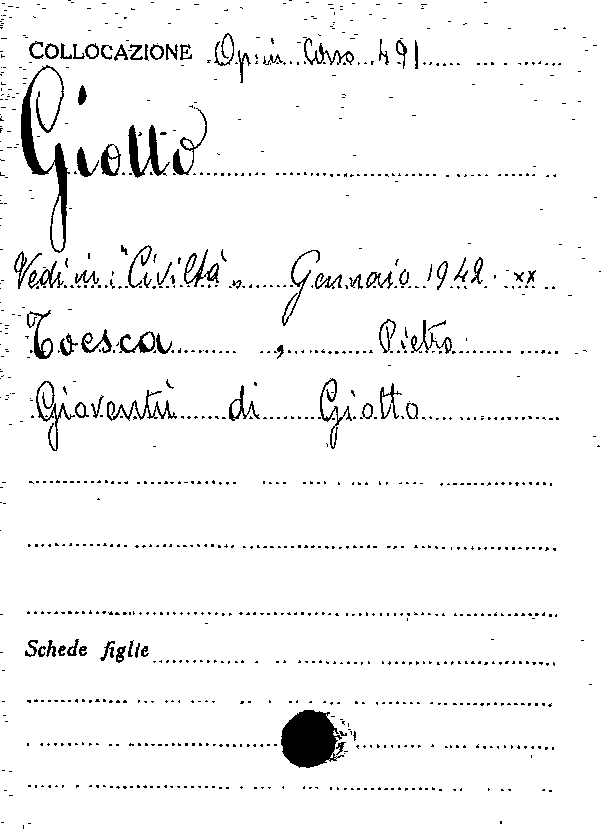 COLLOCAZIONE Op. in Corso 491
Giotto
Vedi in: "Civiltà" Gennaio 1942. xx
Toesca, Pietro
Gioventù di Giotto
Schede figlie